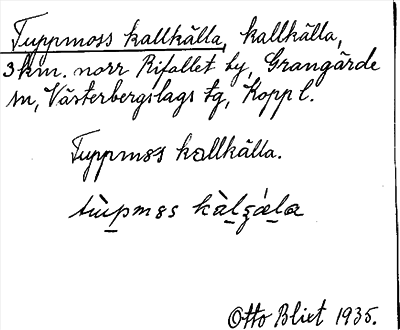 Tuppmoss kallkälla, kallkälla,
3 km. norr Rifallet by, Grangärde
sn, Västerbergslags tg, Kopp l.
Tuppmss kallkälla.
Otto Blixt 1935.